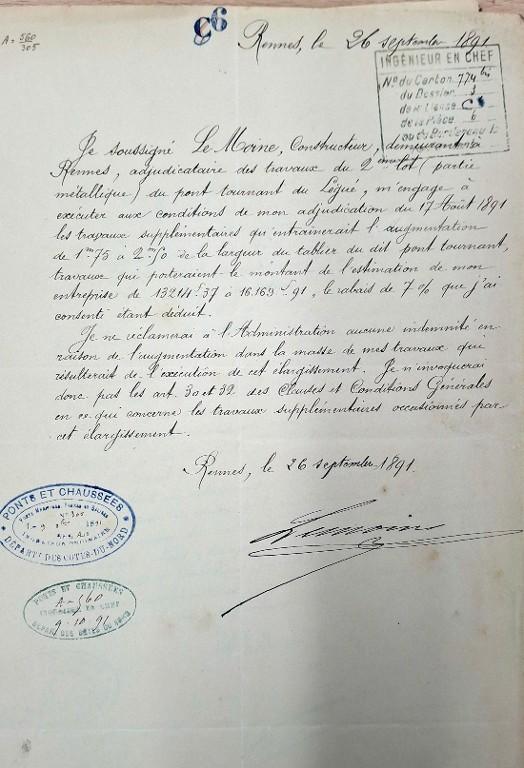 A = 560
305
C6
Rennes, le 26 septembre 1891
INGÉNIEUR EN CHEF
N° du Carton 774 bis
du Dossier 3
de la Liasse C
de la Pièce 6
Je soussigné Le Moine, Constructeur, demeurant à
Rennes, adjudicataire des travaux du 2ème lot (partie
métallique) du pont tournant du Légué, m'engage à
exécuter aux conditions de mon adjudication du 17 Août 1891
les travaux supplémentaires qu'entrainerait l'augmentation
de 1m75 à 2m50 de la largeur du tablier du dit pont tournant,
travaux qui porteraient le montant de l'estimation de mon
entreprise de 13214f37 à 16.169f91, le rabais de 7 % que j'ai
consenti étant déduit.
Je ne réclamerai à l'Administration aucune indemnité en
raison de l'augmentation dans la masse de mes travaux qui
résulterait de l'exécution de cet élargissement. Je n'invoquerai
donc pas les art. 30 et 32 des Clauses et Conditions Générales
en ce qui concerne les travaux supplémentaires occasionnés par
cet élargissement.
Rennes, le 26 septembre 1891.
PONTS ET CHAUSSÉES
N° 305
INGÉNIEUR ORDINAIRE
DÉPART. DES CÔTES-DU-NORD
PONTS ET CHAUSSÉES
A - 560
INGÉNIEUR EN CHEF
9-10 91
DÉPART. DES CÔTES DU NORD